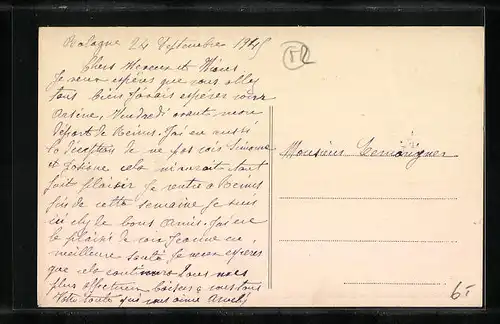 Bologne 24 Septembre 1945
Chers
Je veux espérer que vous allez
tous bien J'avais espérer voir
Arsène, Vendredi avant mon
départ de Reims. J'ai eu aussi
la déception de ne pas voir Simone
et cela m'aurait tout
fait plaisir Je rentre à Reims
fin de cette semaine Je suis
ici chez le bons Amis. J'ai eu
le plaisir de voir Jeanne en
meilleure santé Je veux espérer
que cela continuera Tous mes
plus affectueux baisers à vous tous
Votre tante qui vous aime
Monsieur
6.-